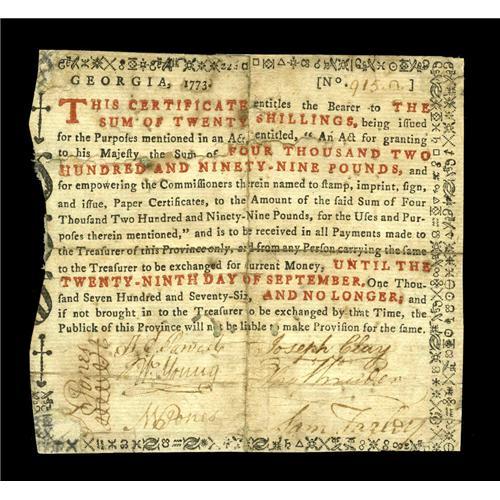 GEORGIA, 1773. [No. 915.a]
THIS CERTIFICATE entitles the Bearer to THE
SUM OF TWENTY SHILLINGS, being issued
for the Purposes mentioned in an Act, entitled, "An Act for granting
to his Majesty the Sum of FOUR THOUSAND TWO
HUNDRED AND NINETY-NINE POUNDS, and
for empowering the Commissioners therein named to stamp, imprint, sign,
and issue, Paper Certificates, to the Amount of the said Sum of Four
Thousand Two Hundred and Ninety-Nine Pounds, for the Uses and Pur-
poses therein mentioned," and is to be received in all Payments made to
the Treasurer of this Province only, and from any Person carrying the same
to the Treasurer to be exchanged for current Money, UNTIL THE
TWENTY-NINTH DAY OF SEPTEMBER, One Thou-
sand Seven Hundred and Seventy-Six, AND NO LONGER; and
if not brought in to the Treasurer to be exchanged by that Time, the
Publick of this Province will not be liable to make Provision for the same.
Joseph Clay
Young
N Jones
Sam Farley